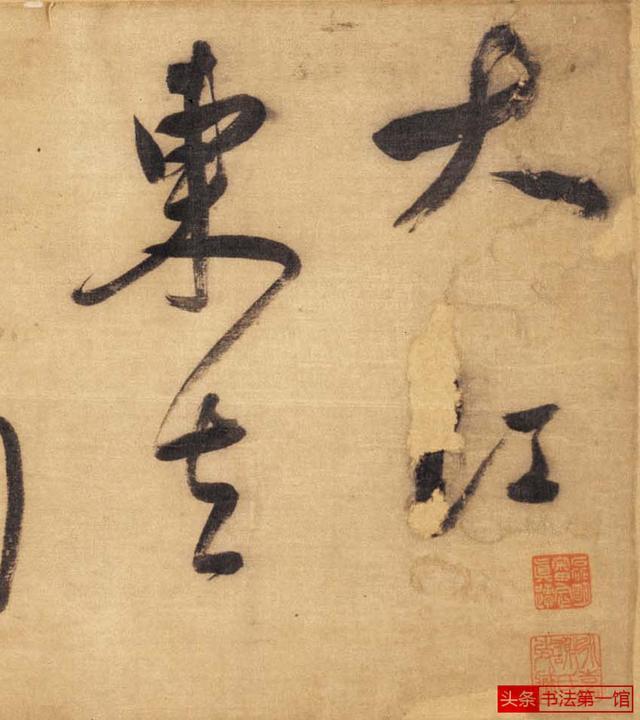 大江
東去
头条 书法第一馆